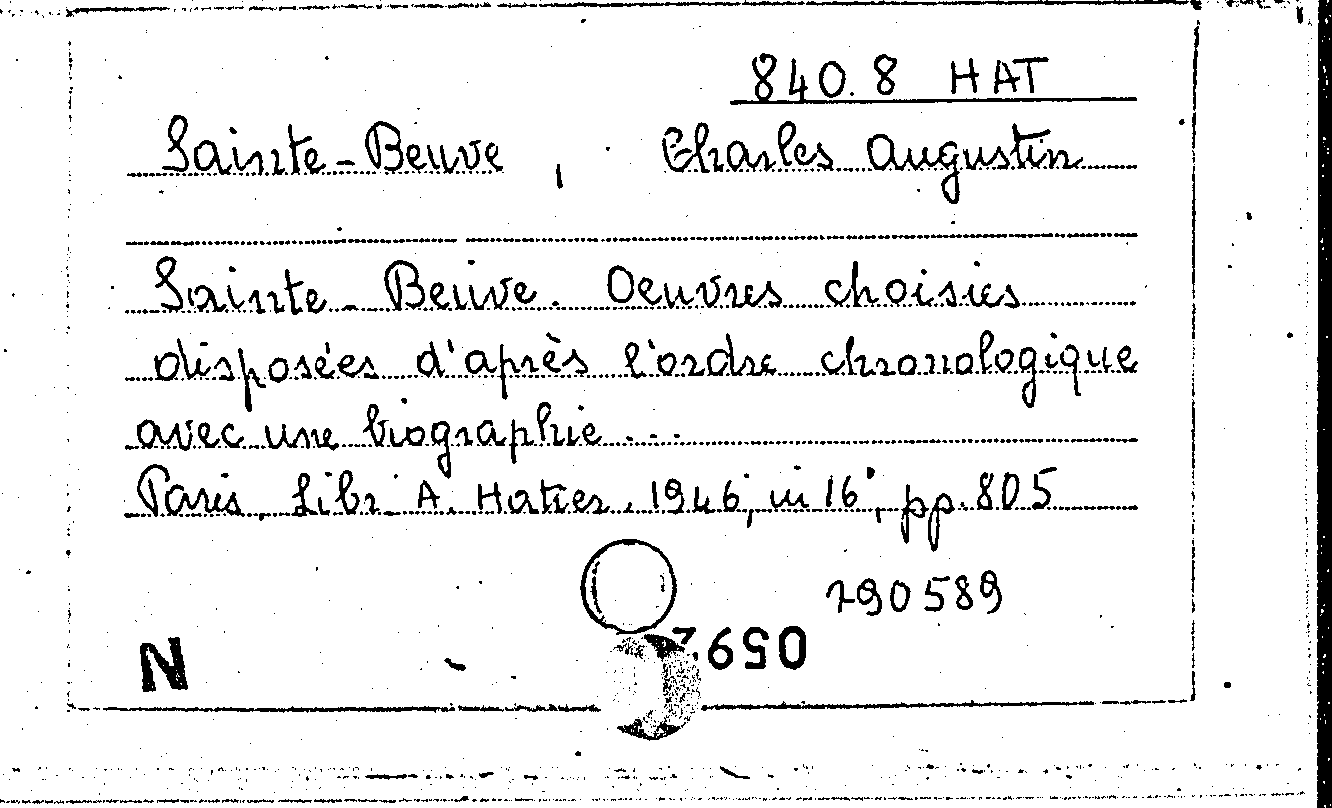 840.8 HAT
Sainte-Beuve, Charles Augustin
Sainte-Beuve. Oeuvres choisies
disposées d'après l'ordre chronologique
avec une biographie...
Paris, Libr. A. Hatier, 1946, in 16°, pp. 805
190589
N